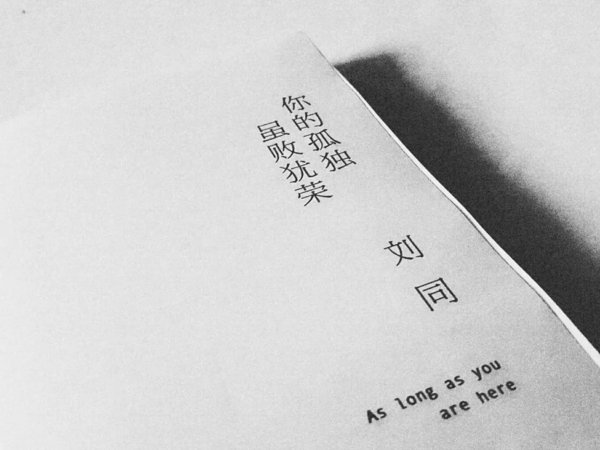 你的孤独
虽败犹荣
刘同
As long as you
are here